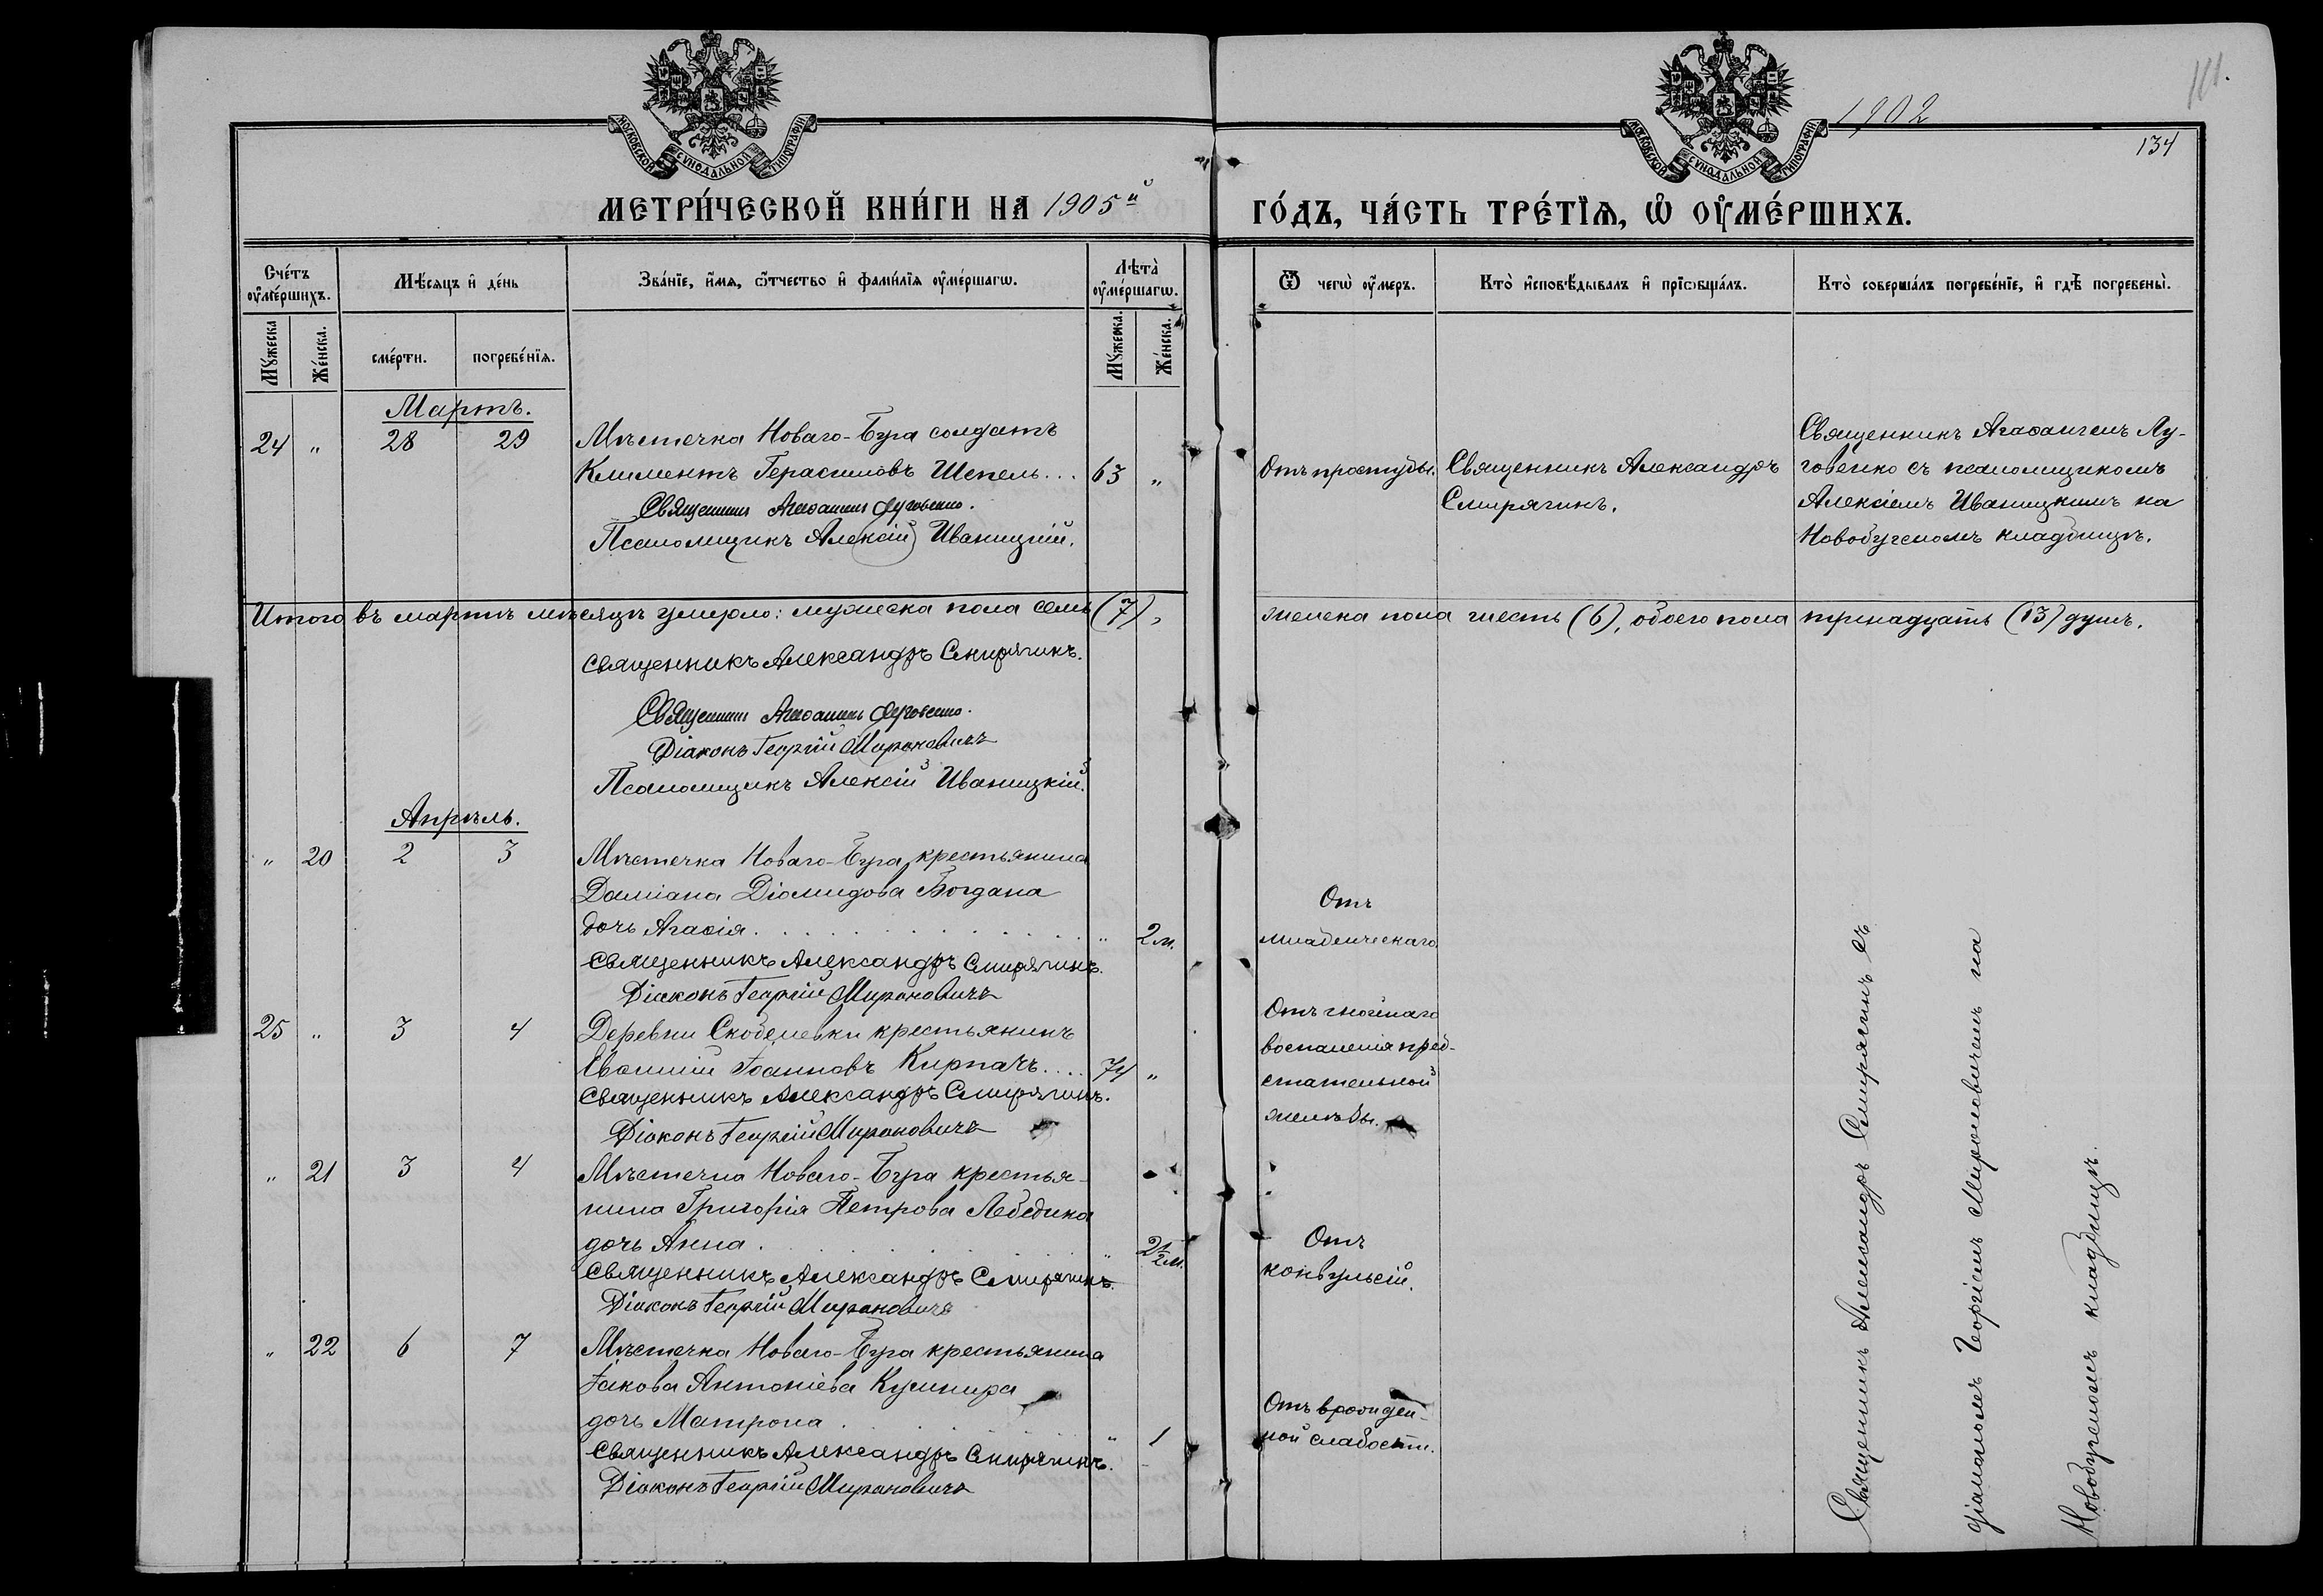 МОСКОВСКОЙ СѴНОДАЛЬНОЙ ТИПОГРАФІИ
МОСКОВСКОЙ СѴНОДАЛЬНОЙ ТИПОГРАФІИ
111.
1902
134
МЕТРИ́ЧЕСКОЙ КНИ́ГИ НА 1905й
ГО́ДЪ, ЧА́СТЬ ТРЕ́ТЇѦ, Ѽ ОУ҆МЕ́РШИХЪ.
Сче́тъ оу҆ме́ршихъ.
Мѣ́сяцъ и҆ де́нь
Зва́нїе, и҆́мѧ, ѻ҆́тчество и҆ фами́лїѧ оу҆ме́ршагѡ.
Лѣта̀ оу҆ме́ршагѡ.
Ѿ чегѡ̀ оу҆́меръ.
Кто̀ и҆сповѣ́дывалъ и҆ прїѡбща́лъ.
Кто̀ соверша́лъ погребе́нїе, и҆ гдѣ̀ погребены̀.
Мꙋ́жеска
Же́нска.
сме́рти.
погребе́нїѧ.
Мꙋ́жеска.
Же́нска.
Мартъ.
24 " 28 29 Мѣстечка Новаго-Буга солдатъ
Климентъ Герасимовъ Шепель... 63 "
Священникъ Агаѳангелъ Луговенко.
Псаломщикъ Алексій Иваницкій.
Отъ простуды.
Священникъ Александръ
Смирягинъ.
Священникъ Агаѳангелъ Лу-
говенко съ псаломщикомъ
Алексіемъ Иваницкимъ на
Новобугскомъ кладбищѣ.
Итого въ мартѣ мѣсяцѣ умерло: мужеска пола семь (7), женска пола шесть (6), обоего пола тринадцать (13) душъ.
Священникъ Александръ Смирягинъ.
Священникъ Агаѳангелъ Луговенко.
Діаконъ Георгій Мироновичъ
Псаломщикъ Алексій Иваницкій.
Апрѣль.
" 20 2 3 Мѣстечка Новаго-Буга крестьянина
Даміана Діомидова Богдана
дочь Агаѳія. " 2 м.
Священникъ Александръ Смирягинъ.
Діаконъ Георгій Мироновичъ
Отъ
младенческаго
25 " 3 4 Деревни Скобелевки крестьянинъ
Евѳимій Іоанновъ Кирпачъ.... 74 "
Священникъ Александръ Смирягинъ.
Діаконъ Георгій Мироновичъ
Отъ гнойнаго
воспаленія пред-
стательной
железы.
" 21 3 4 Мѣстечка Новаго-Буга крестья-
нина Григорія Петрова Лебедика
дочь Анна. " 2½ м.
Священникъ Александръ Смирягинъ.
Діаконъ Георгій Мироновичъ
Отъ
конвульсій.
" 22 6 7 Мѣстечка Новаго-Буга крестьянина
Іакова Антоніева Кушнира
дочь Матрона. " 1
Священникъ Александръ Смирягинъ.
Діаконъ Георгій Мироновичъ
Отъ врожден-
ной слабости.
Священникъ Александръ Смирягинъ съ
діакономъ Георгіемъ Мироновичемъ на
Новобугскомъ кладбищѣ.